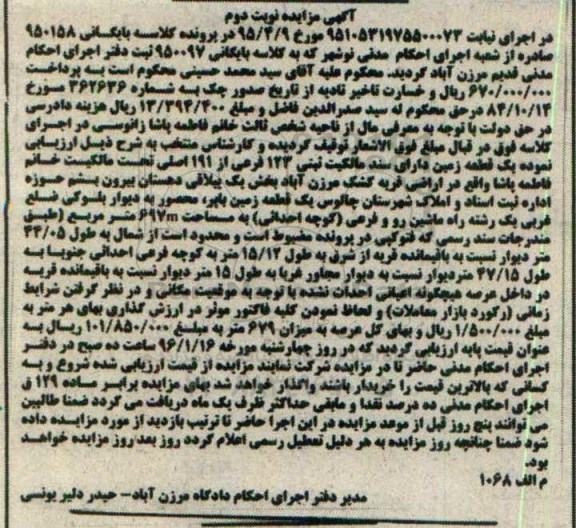 آگهی مزایده نوبت دوم
در اجرای نیابت ۹۵۱۰۵۳۱۹۷۵۵۰۰۰۷۳ مورخ ۹۵/۴/۹ در پرونده کلاسه بایگانی ۹۵۰۱۵۸
صادره از شعبه اجرای احکام مدنی نوشهر که به کلاسه بایگانی ۹۵۰۰۹۷ ثبت دفتر اجرای احکام
مدنی قدیم مرزن آباد گردید. محکوم علیه آقای سید محمد حسینی محکوم است به پرداخت
۶۷۰/۰۰۰/۰۰۰ ریال و خسارت تاخیر تادیه از تاریخ صدور چک به شماره ۳۶۲۶۳۶ مورخ
۸۴/۱۰/۱۴ در حق محکوم له سید صدرالدین فاضل و مبلغ ۱۳/۳۹۴/۴۰۰ ریال هزینه دادرسی
در حق دولت با توجه به معرفی مال از ناحیه شخص ثالث خانم فاطمه پاشا زانوسی در اجرای
کلاسه فوق در قبال مبلغ فوق الاشعار توقیف گردیده و کارشناس منتخب به شرح ذیل ارزیابی
نموده یک قطعه زمین دارای سند مالکیت ثبتی ۱۲۳ فرعی از ۱۹۱ اصلی تحت مالکیت خانم
فاطمه پاشا واقع در اراضی قریه کشک مرزن آباد بخش یک ییلاقی دهستان بیرون بشم حوزه
اداره ثبت اسناد و املاک شهرستان چالوس یک قطعه زمین بایر، محصور به دیوار بلوکی ضلع
غربی یک رشته راه ماشین رو و فرعی (کوچه احداثی) به مساحت ۶۹۷m متر مربع (طبق
مندرجات سند رسمی که فتوکپی در پرونده مضبوط است و محدود است از شمال به طول ۴۴/۰۵
متر دیوار نسبت به باقیمانده قریه از شرق به طول ۱۵/۱۲ متر به کوچه فرعی احداثی جنوبا به
طول ۴۷/۱۵ متردیوار نسبت به دیوار مجاور غربا به طول ۱۵ متر دیوار نسبت به باقیمانده قریه
در داخل عرصه هیچگونه اعیانی احداث نشده با توجه به موقعیت مکانی و در نظر گرفتن شرایط
زمانی (رکورد بازار معاملات) و لحاظ نمودن کلیه فاکتور موثر در ارزش گذاری بهای هر متر به
مبلغ ۱/۵۰۰/۰۰۰ ریال و بهای کل عرصه به میزان ۶۷۹ متر به مبلغ ۱۰۱/۸۵۰/۰۰۰ ریال به
عنوان قیمت پایه ارزیابی گردید که در روز چهارشنبه مورخه ۹۶/۱/۱۶ ساعت ده صبح در دفتر
اجرای احکام مدنی حاضر تا در مزایده شرکت نمایند مزایده از قیمت ارزیابی شده شروع و به
کسانی که بالاترین قیمت را خریدار باشند واگذار خواهد شد بهای مزایده برابر ماده ۱۲۹ ق
اجرای احکام مدنی ده درصد نقدا و مابقی حداکثر ظرف یک ماه دریافت می گردد ضمنا طالبین
می توانند پنج روز قبل از موعد مزایده در این اجرا حاضر تا ترتیب بازدید از مورد مزایده داده
شود ضمنا چنانچه روز مزایده به هر دلیل تعطیل رسمی اعلام گردد روز بعد روز مزایده خواهد
بود.
م الف ۱۰۶۸
مدیر دفتر اجرای احکام دادگاه مرزن آباد- حیدر دلیر یونسی